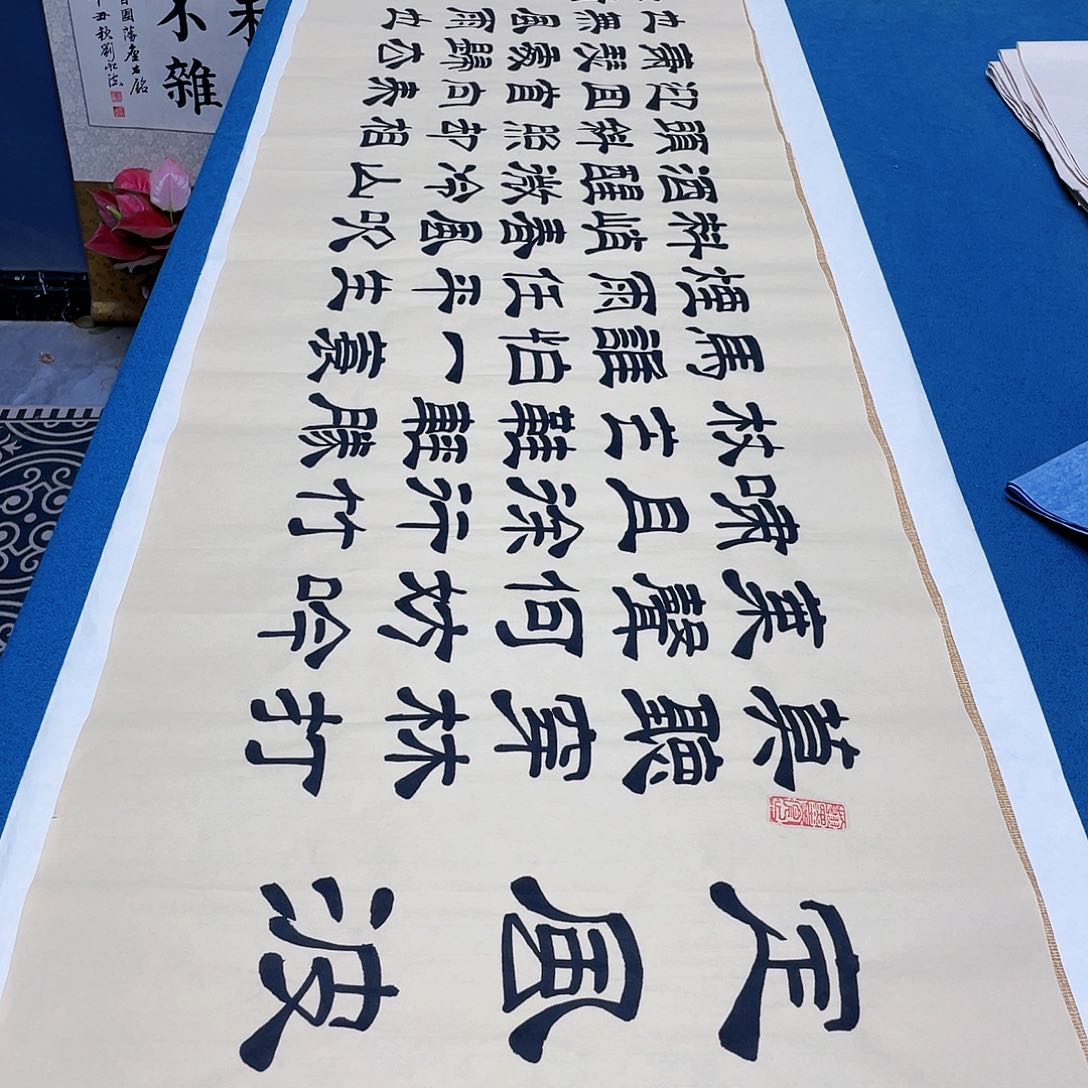 定風波
莫聽穿林打
葉聲何妨吟
嘯且徐行竹
杖芒鞋輕勝
馬誰怕一蓑
煙雨任平生
料峭春風吹
酒醒微冷山
頭斜照却相
迎回首向來
蕭瑟處歸去
也無風雨也
不雜
國藩座右銘
丑秋劉